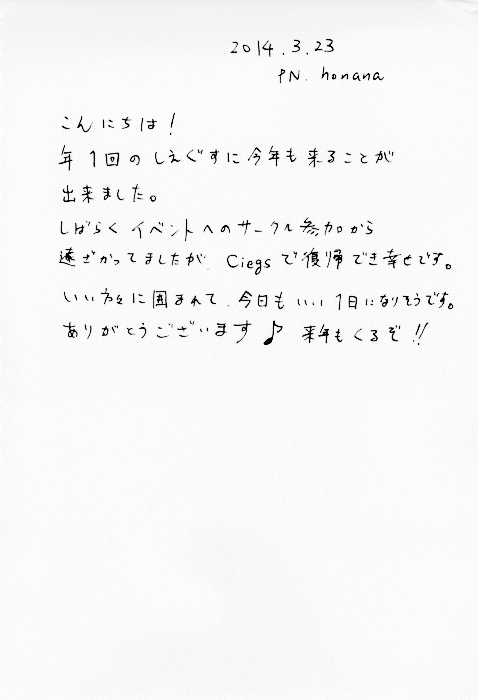 2014.3.23
PN. honana
こんにちは!
年1回のしえぐすに今年も来ることが
出来ました。
しばらくイベントへのサークル参加から
遠ざかってましたが、Ciegsで復帰でき幸せです。
いい方々に囲まれて、今日もいい1日になりそうです。
ありがとうございます♪ 来年もくるぞ!!